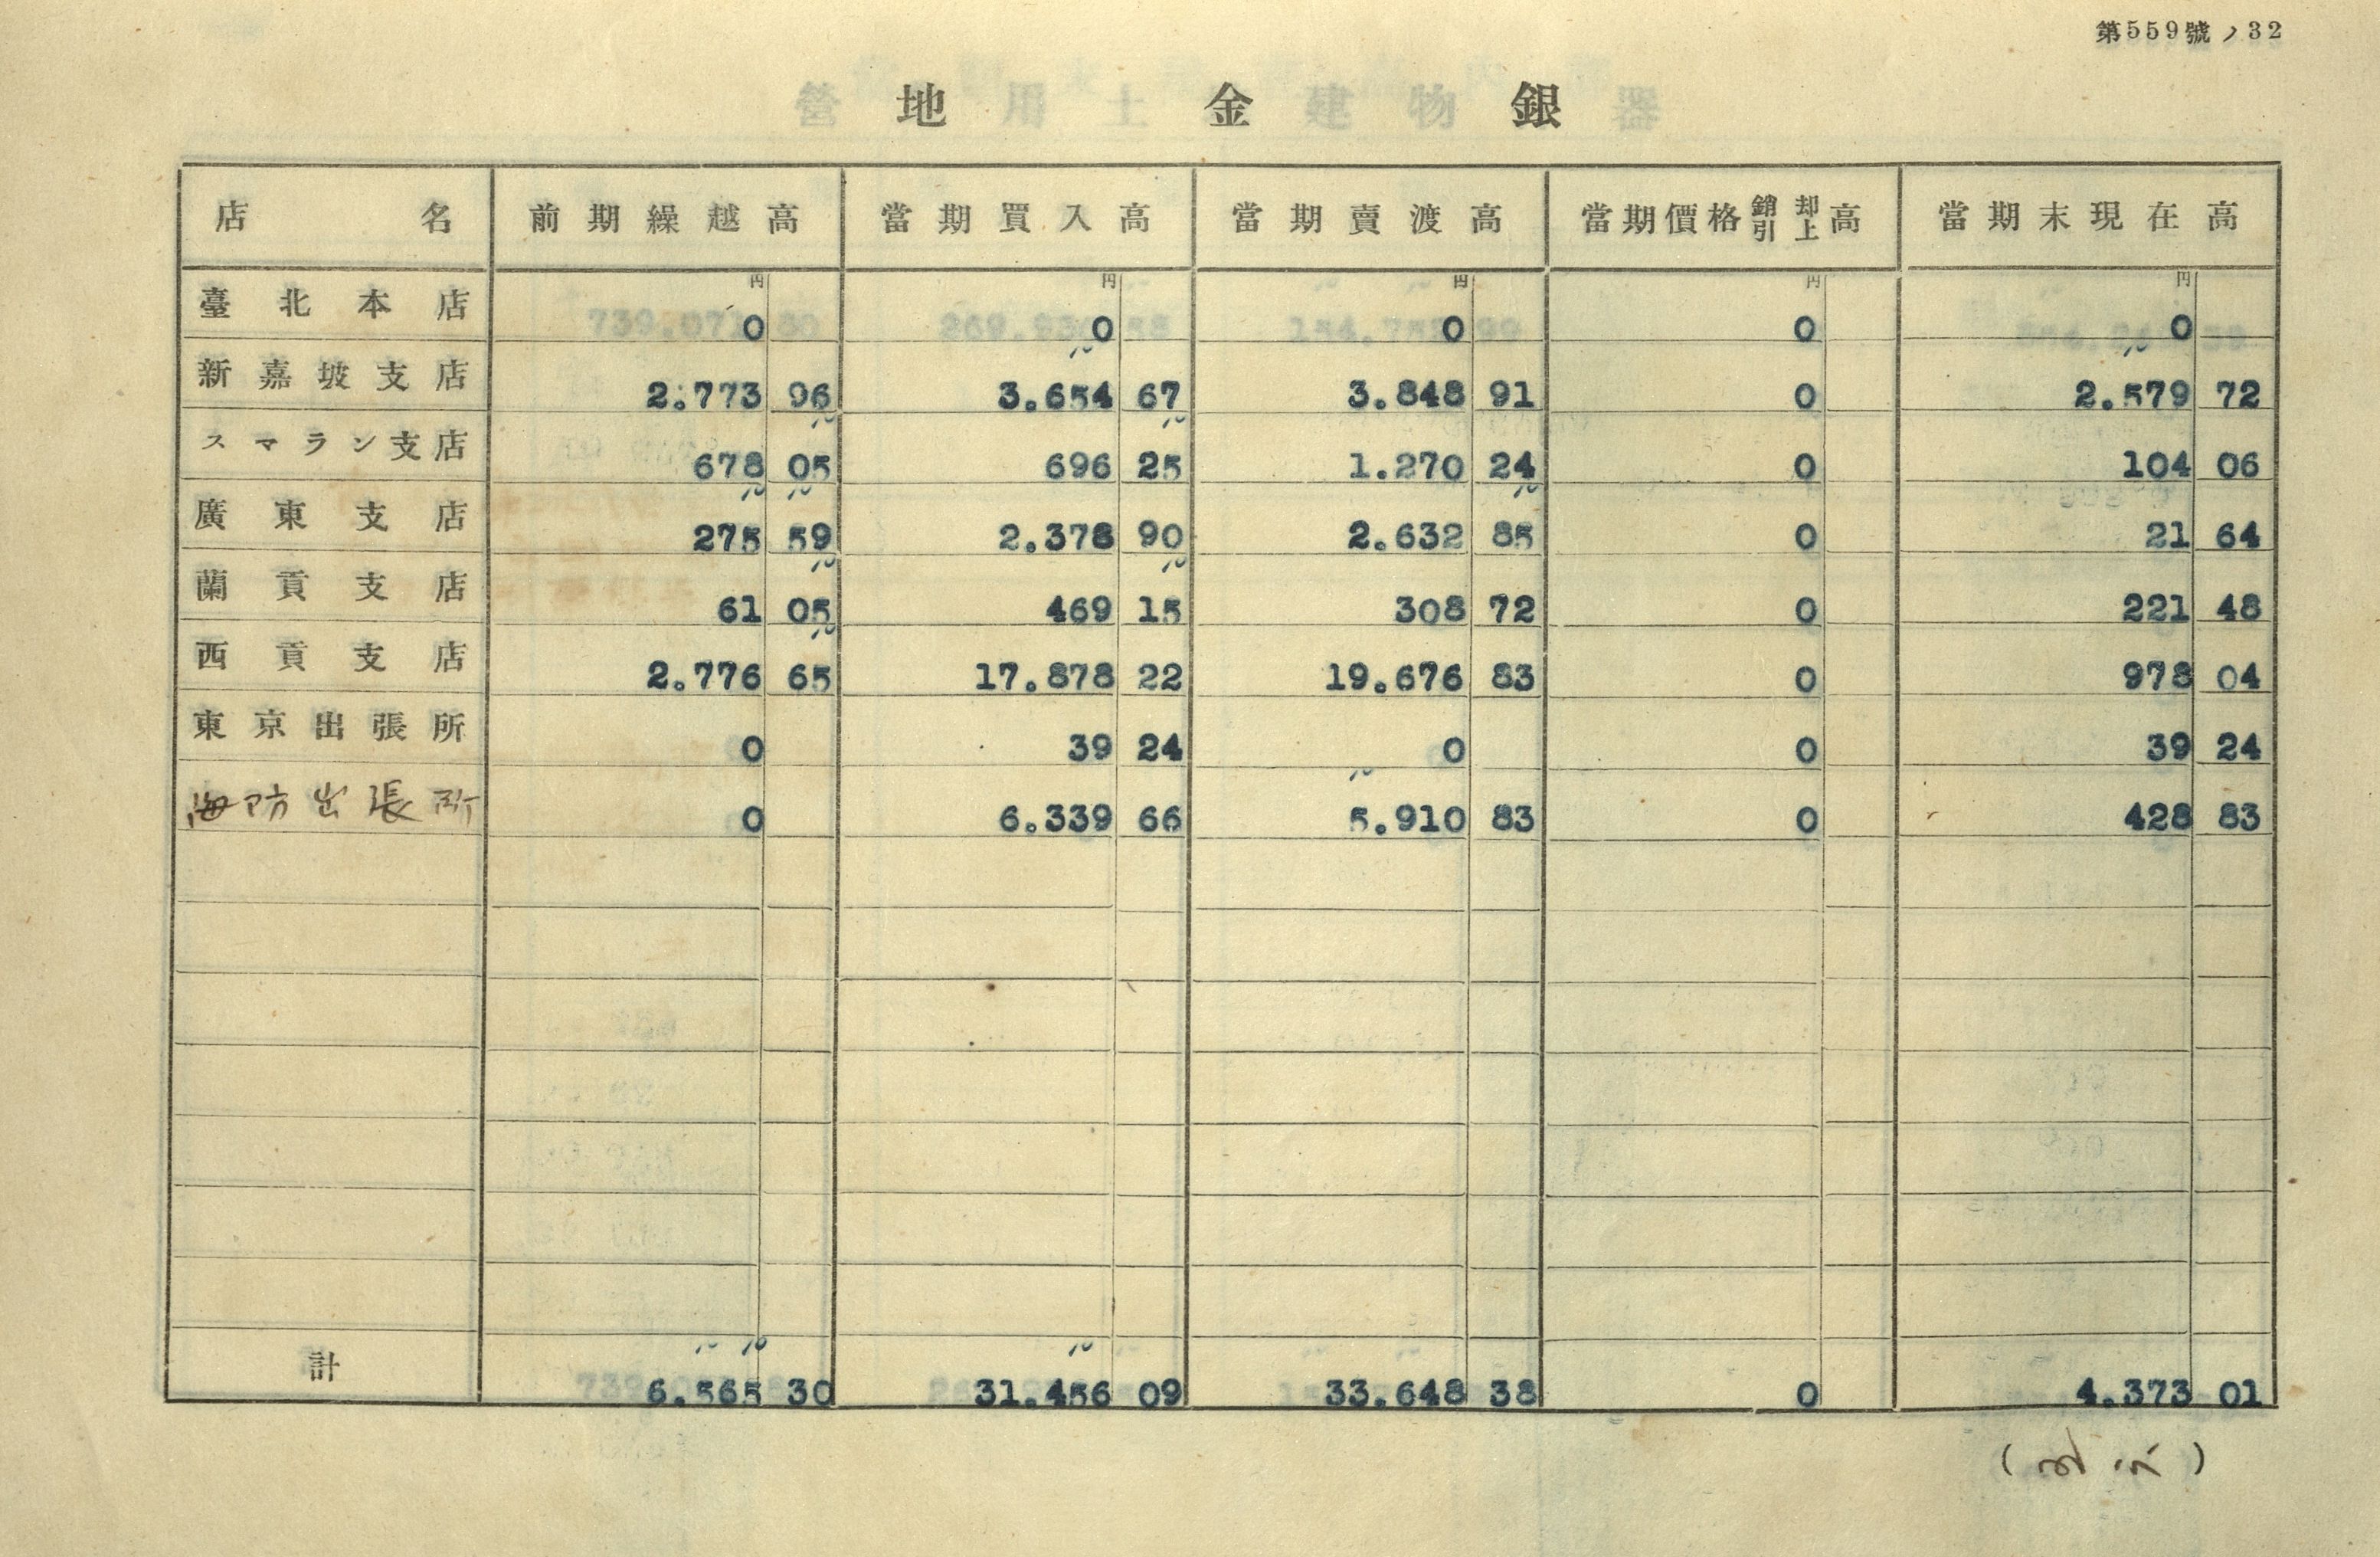 第559號ノ32
地金銀
店名 前期繰越高 當期買入高 當期賣渡高 當期價格銷却引上高 當期末現在高
円 円 円 円 円
臺北本店 0 0 0 0 0
新嘉坡支店 2.773 96 3.654 67 3.848 91 0 2.579 72
スマラン支店 678 05 696 25 1.270 24 0 104 06
廣東支店 275 59 2.378 90 2.632 85 0 21 64
蘭貢支店 61 05 469 15 308 72 0 221 48
西貢支店 2.776 65 17.878 22 19.676 83 0 978 04
東京出張所 0 39 24 0 0 39 24
海防出張所 0 6.339 66 5.910 83 0 428 83
計 6.565 30 31.456 09 33.648 38 0 4.373 01